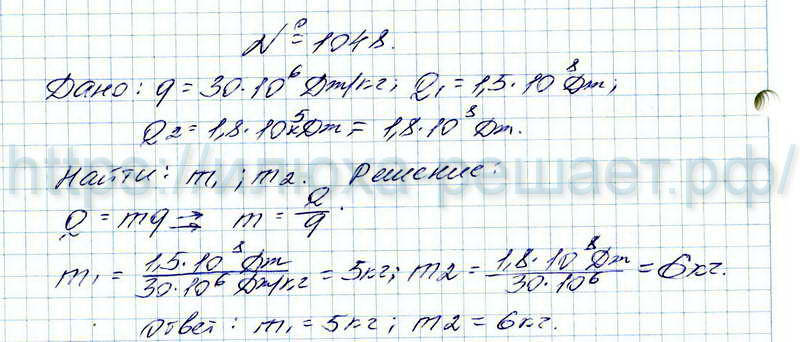 № 1048.
Дано: q = 30·10⁶ Дж/кг; Q₁ = 1,5·10⁸ Дж;
Q₂ = 1,8·10⁵ кДж = 1,8·10⁸ Дж.
https://илюха-решает.рф/
Найти: m₁; m₂. Решение:
Q = mq ⇒ m = Q/q.
m₁ = 1,5·10⁸ Дж / 30·10⁶ Дж/кг = 5кг; m₂ = 1,8·10⁸ Дж / 30·10⁶ = 6кг.
Ответ: m₁ = 5кг; m₂ = 6кг.